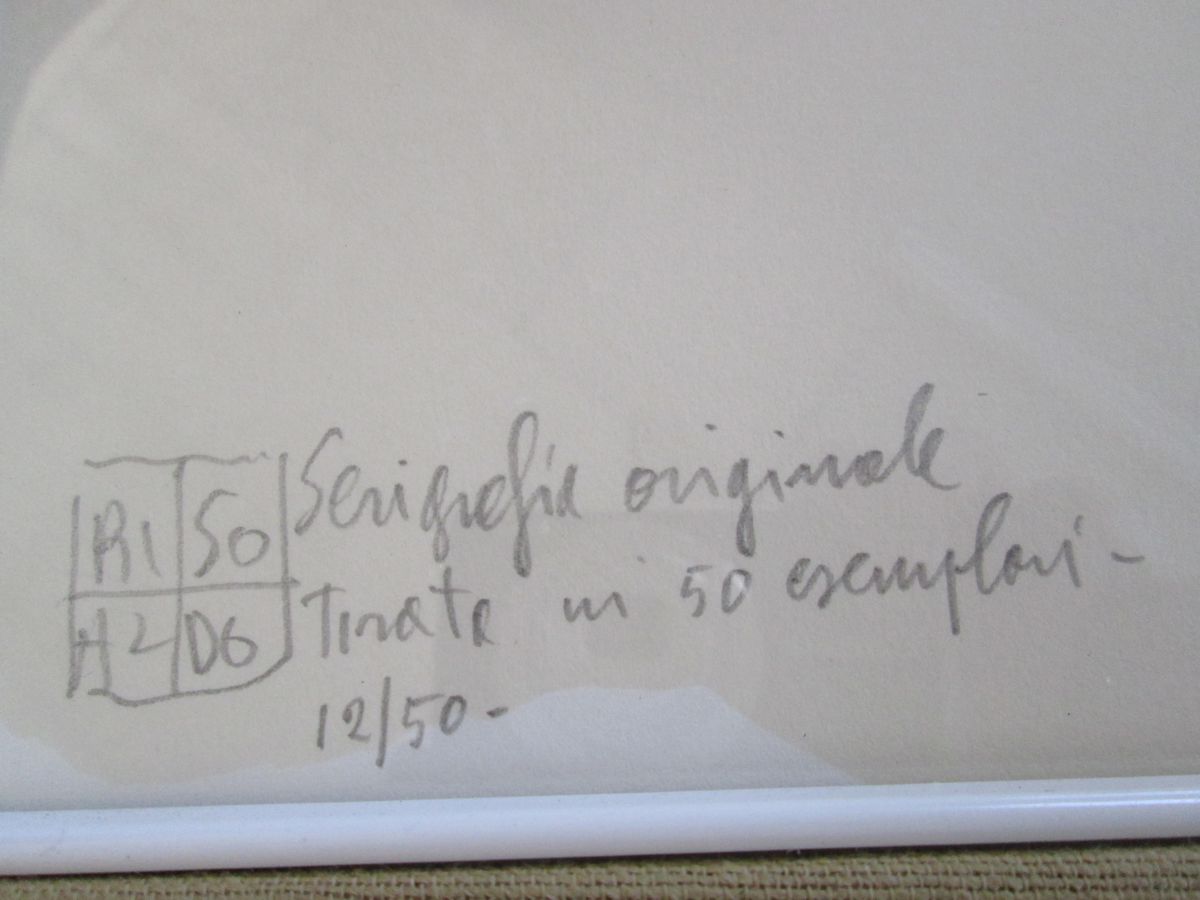 R1 SO
A2 D6
Serigrafia originale
Tirata in 50 esemplari -
12/50 -